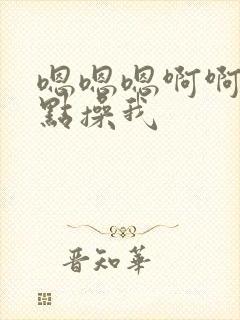 嗯嗯嗯啊啊
點操我
晋知華